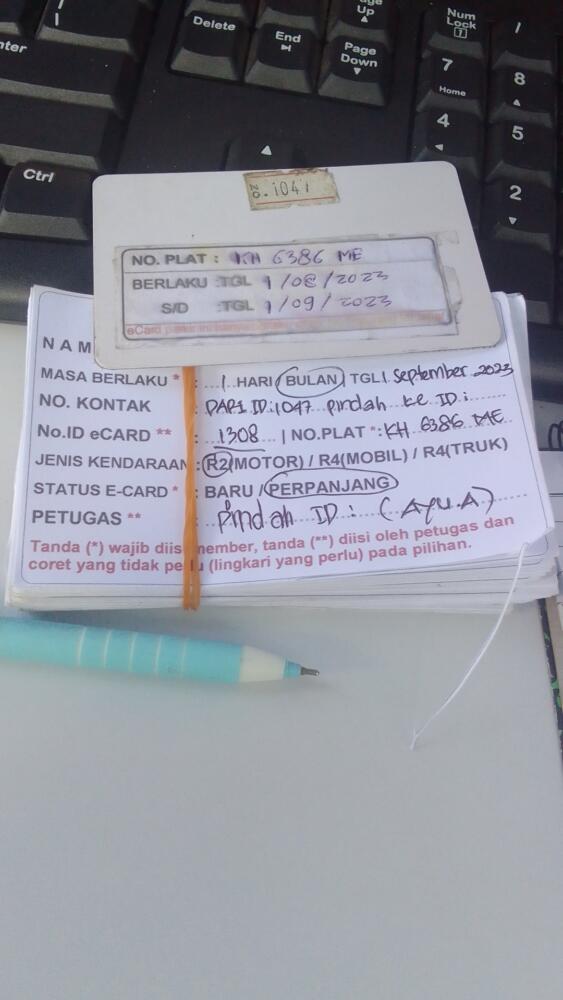 Delete
End
Page
Up
Page
Down
Num
Lock
/
7
Home
8
4
5
2
Ctrl
NO. 1047
NO. PLAT : KH 6386 ME
BERLAKU :TGL 1/08/2023
S/D :TGL 1/09/2023
eCard parkir ini hanya
NAM
MASA BERLAKU * : 1 HARI / BULAN TGL 1 September 2023
NO. KONTAK : DARI ID:1047 pindah ke ID:
No.ID eCARD ** : 1308 | NO.PLAT *: KH 6386 ME
JENIS KENDARAAN : R2(MOTOR) / R4(MOBIL) / R4(TRUK)
STATUS E-CARD * : BARU / PERPANJANG
PETUGAS ** : Pindah ID : (Ayu.A)
Tanda (*) wajib diisi member, tanda (**) diisi oleh petugas dan
coret yang tidak perlu (lingkari yang perlu) pada pilihan.